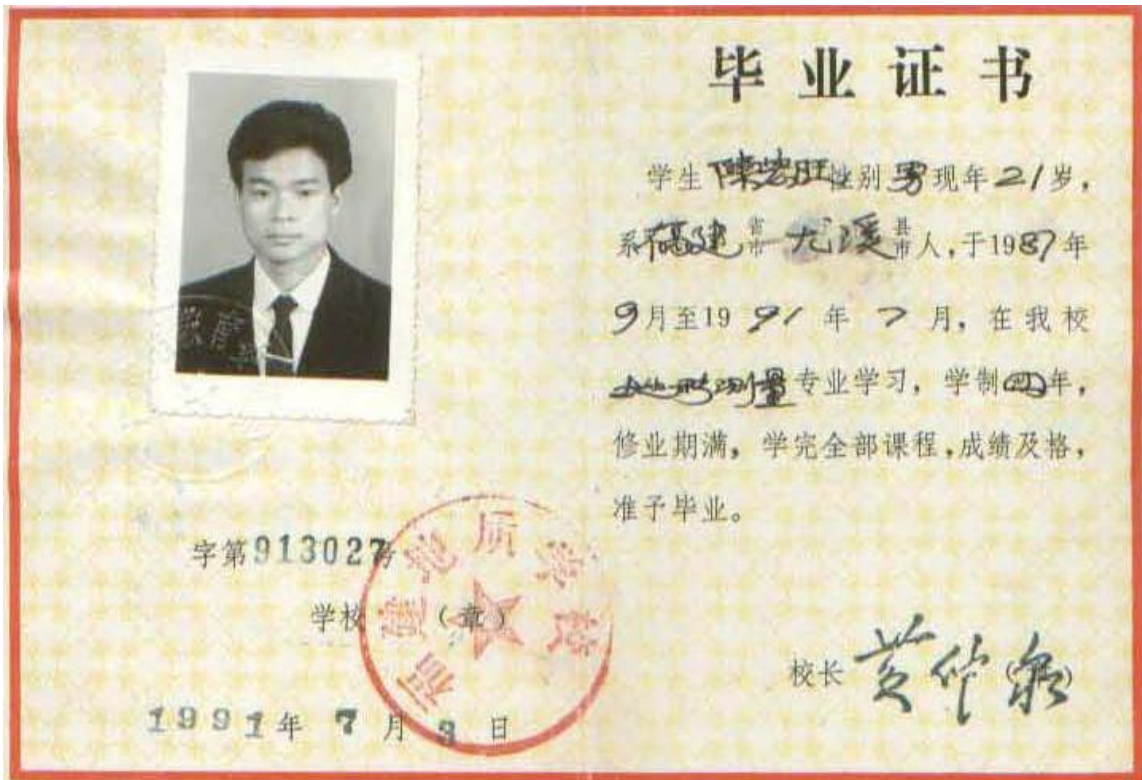 毕业证书
学生陳宏旺性别男现年21岁,
系福建省市尤溪县市人,于1987年
9月至1991年7月,在我校
地形测量专业学习,学制四年,
修业期满,学完全部课程,成绩及格,
准予毕业。
校长 黄 (章)
字第913027号
学校(章)
福建地质学校
1991年7月3日